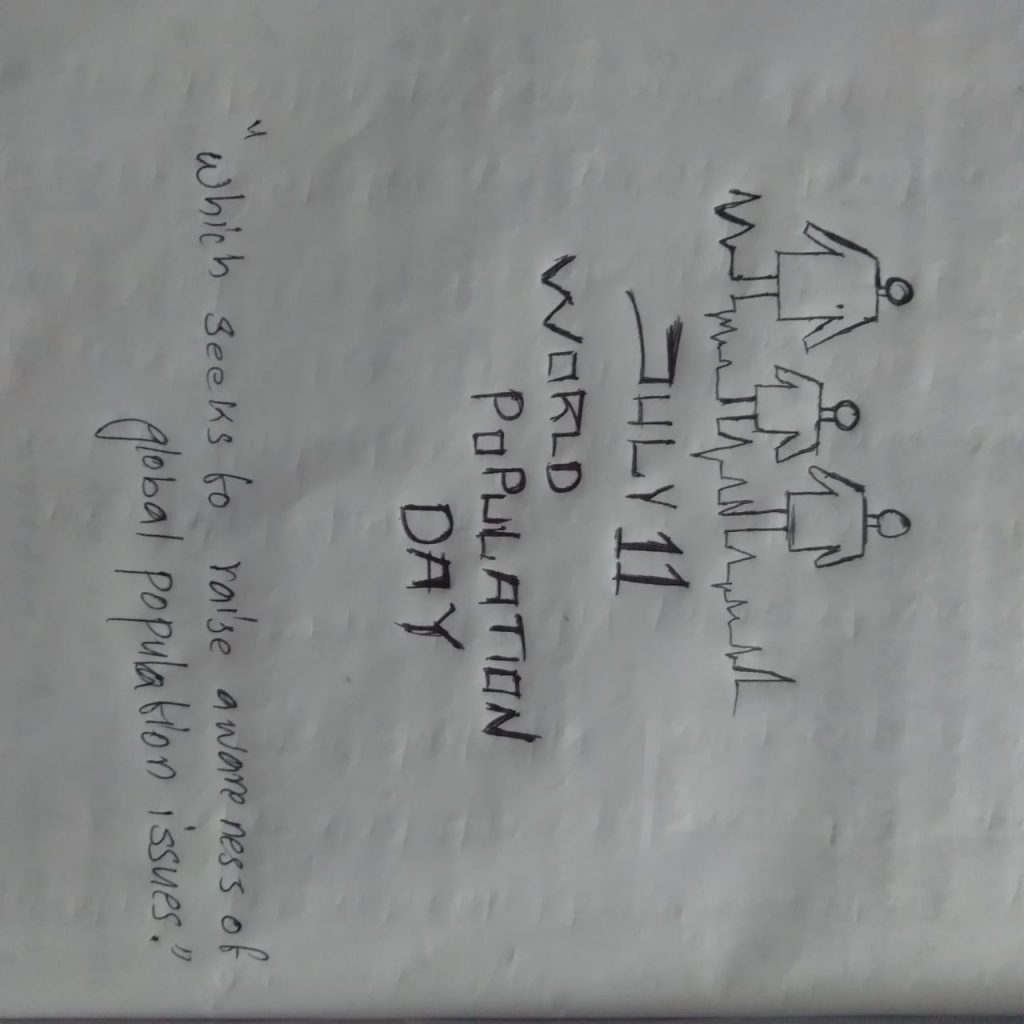 JULY 11
WORLD
POPULATION
DAY
"which seeks to raise awareness of
global population issues."